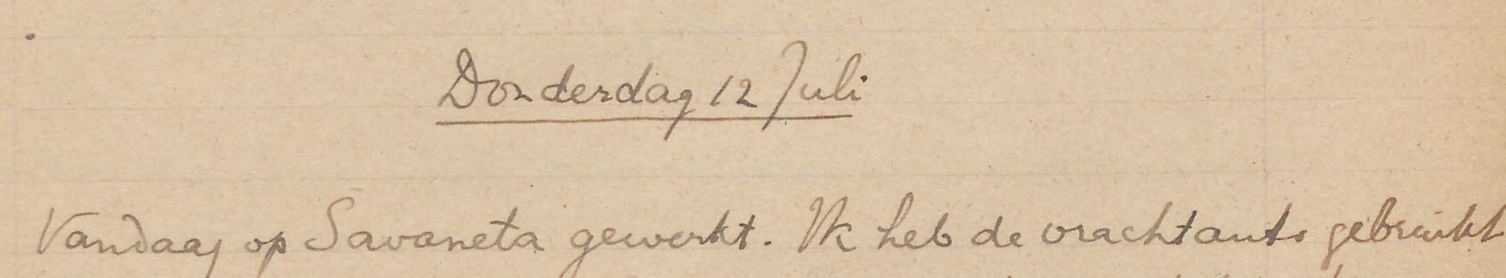 Donderdag 12 Juli
Vandaag op Savaneta gewerkt. Ik heb de vrachtauto gebruikt